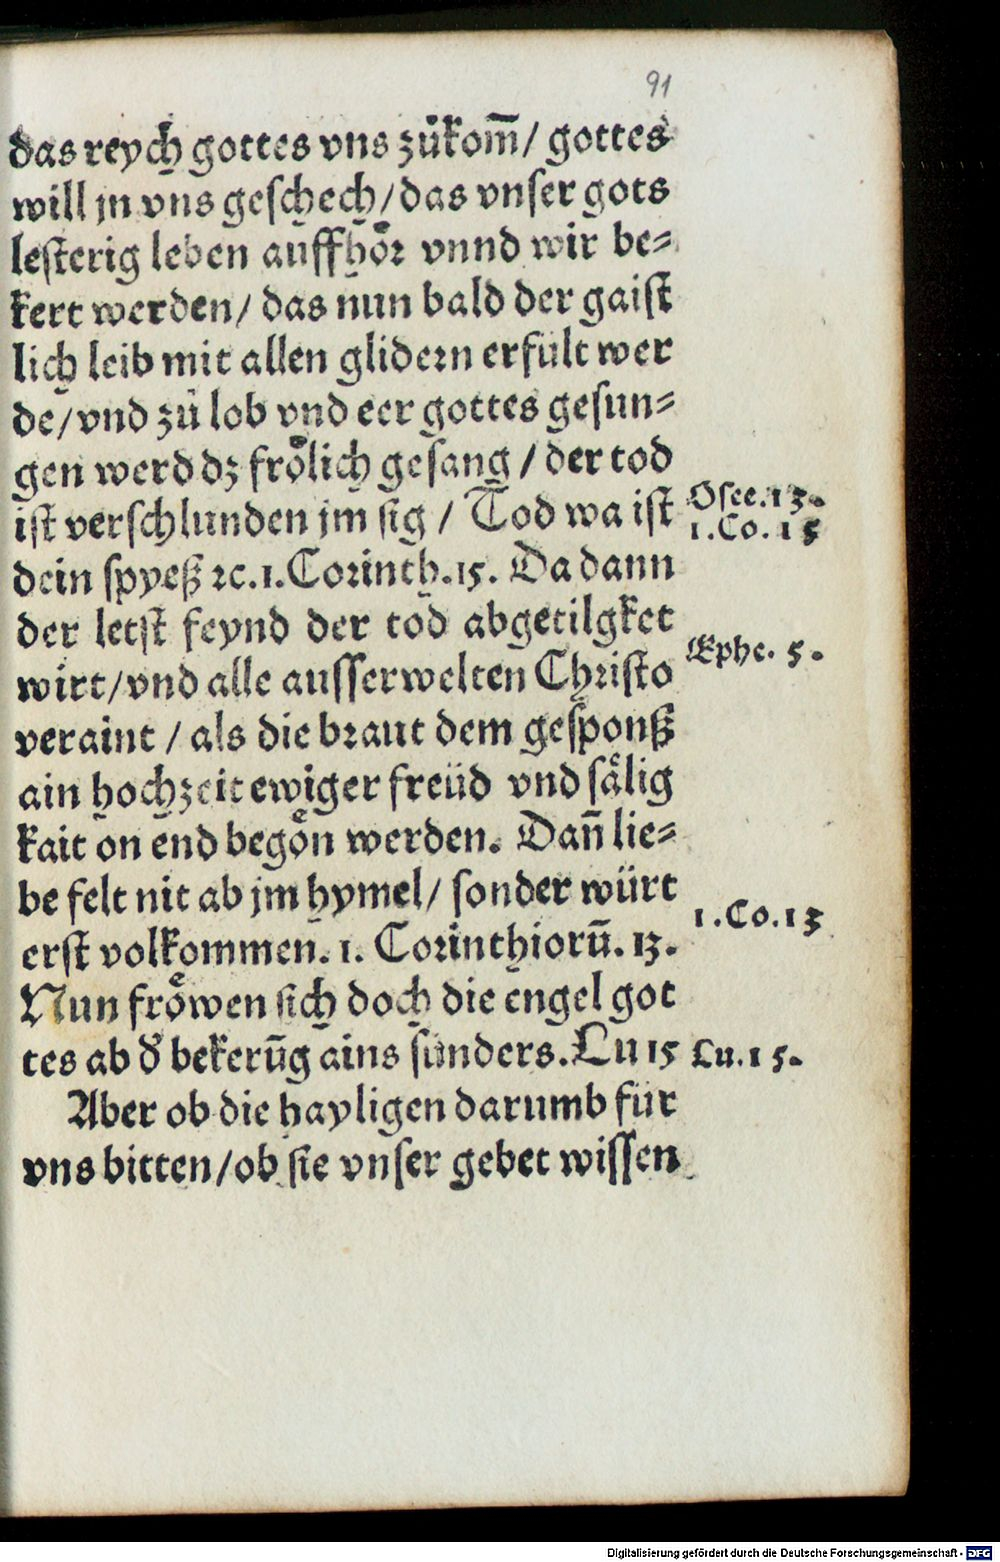 91
das reych gottes vns zůkom̄/ gottes
will jn vns geschech/das vnser gots
lesterig leben auffhoͤr vnnd wir be⸗
kert werden/ das nun bald der gaist
lich leib mit allen glidern erfült wer
de/vnd zů lob vnd eer gottes gesun⸗
gen werd dz froͤlich gesang / der tod
ist verschlunden jm sig / Tod wa ist
Osee.13.
1.Co.15
dein spyeß ⁊c.1.Corinth.15. Da dann
der letst feynd der tod abgetilgket
Ephe. 5.
wirt/vnd alle ausserwelten Christo
veraint / als die braut dem gesponß
ain hochzeit ewiger freüd vnd saͤlig
kait on end begoͤn werden. Dan̄ lie⸗
be felt nit ab jm hymel/ sonder würt
1.Co.13
erst volkommen. 1. Corinthiorū. 13.
Nun froͤwen sich doch die engel got
tes ab d̕ bekerūg ains sünders.Lu 15
Lu.15.
Aber ob die hayligen darumb für
vns bitten/ob sie vnser gebet wissen
Digitalisierung gefördert durch die Deutsche Forschungsgemeinschaft - DFG